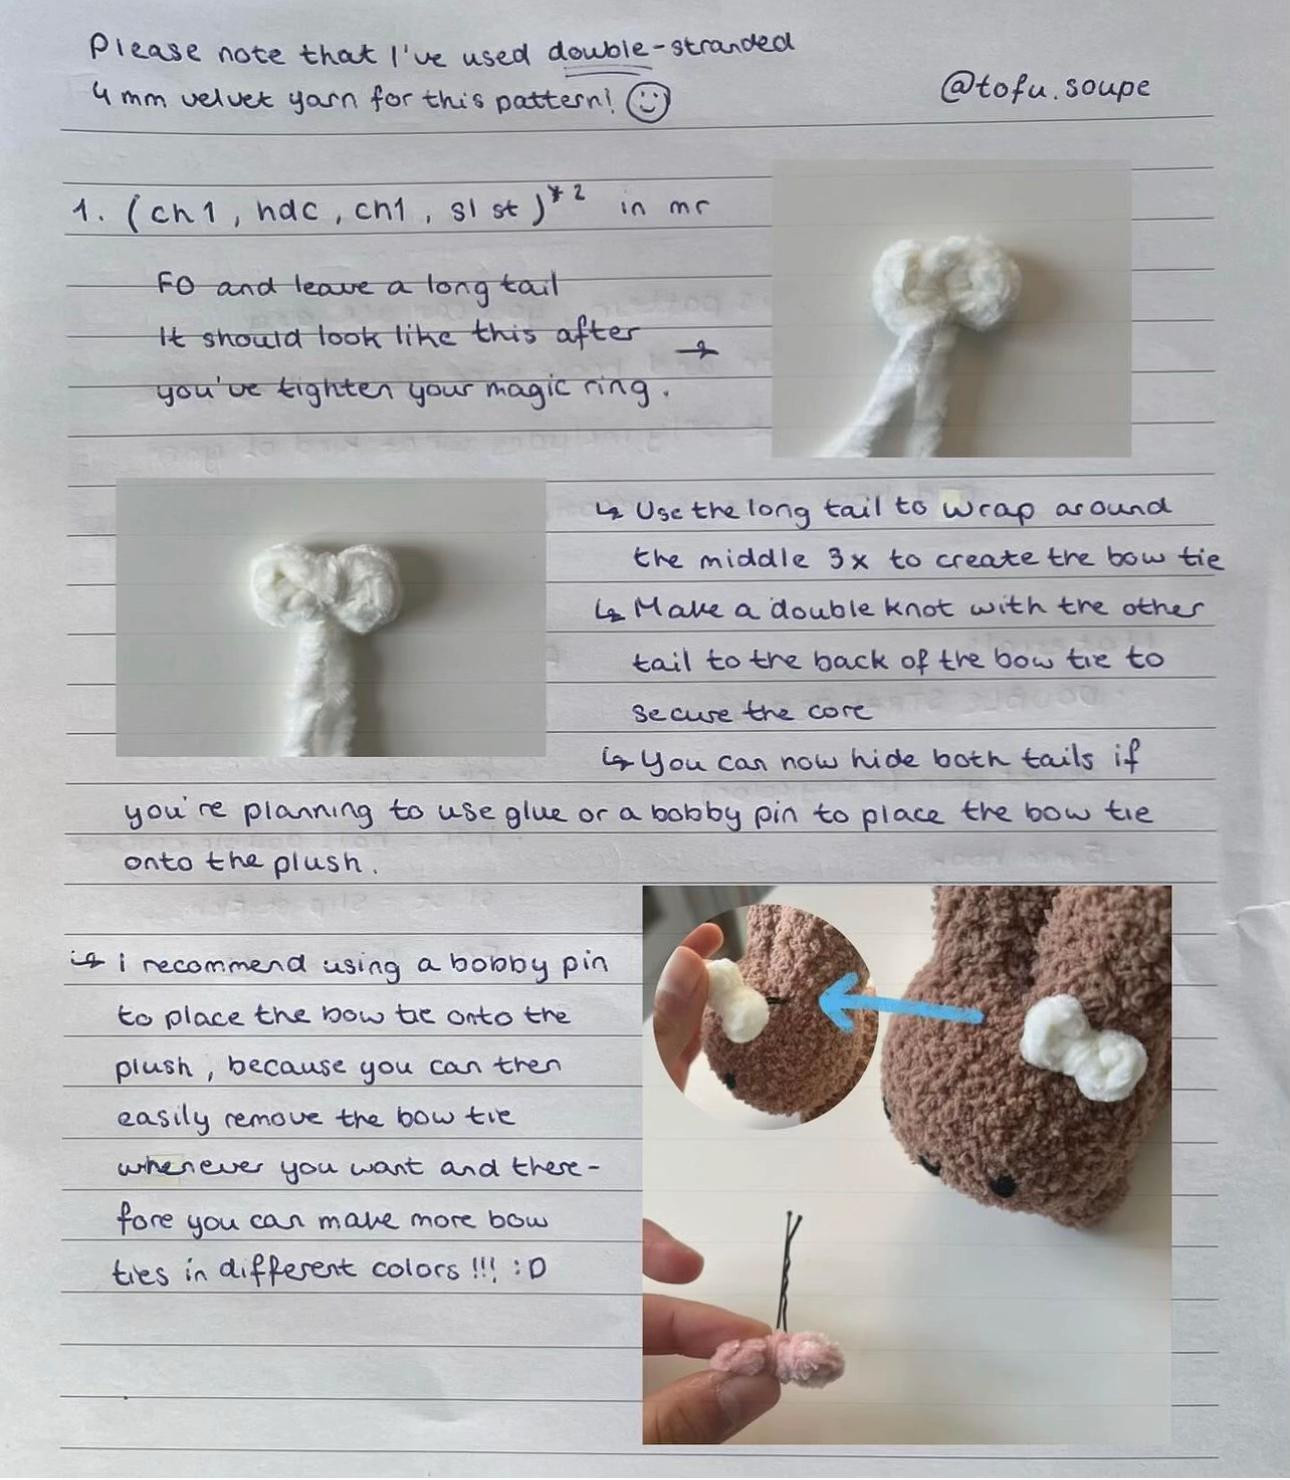 Please note that I've used double-stranded
4 mm velvet yarn for this pattern! ☺
@tofu.soupe
1. (ch1, hdc, ch1, sl st)*2 in mr
FO and leave a long tail
It should look like this after →
you've tighten your magic ring.
↳ Use the long tail to wrap around
the middle 3x to create the bow tie
↳ Make a double knot with the other
tail to the back of the bow tie to
secure the core
↳ You can now hide both tails if
you're planning to use glue or a bobby pin to place the bow tie
onto the plush.
↳ I recommend using a bobby pin
to place the bow tie onto the
plush, because you can then
easily remove the bow tie
whenever you want and there-
fore you can make more bow
ties in different colors!!! :D